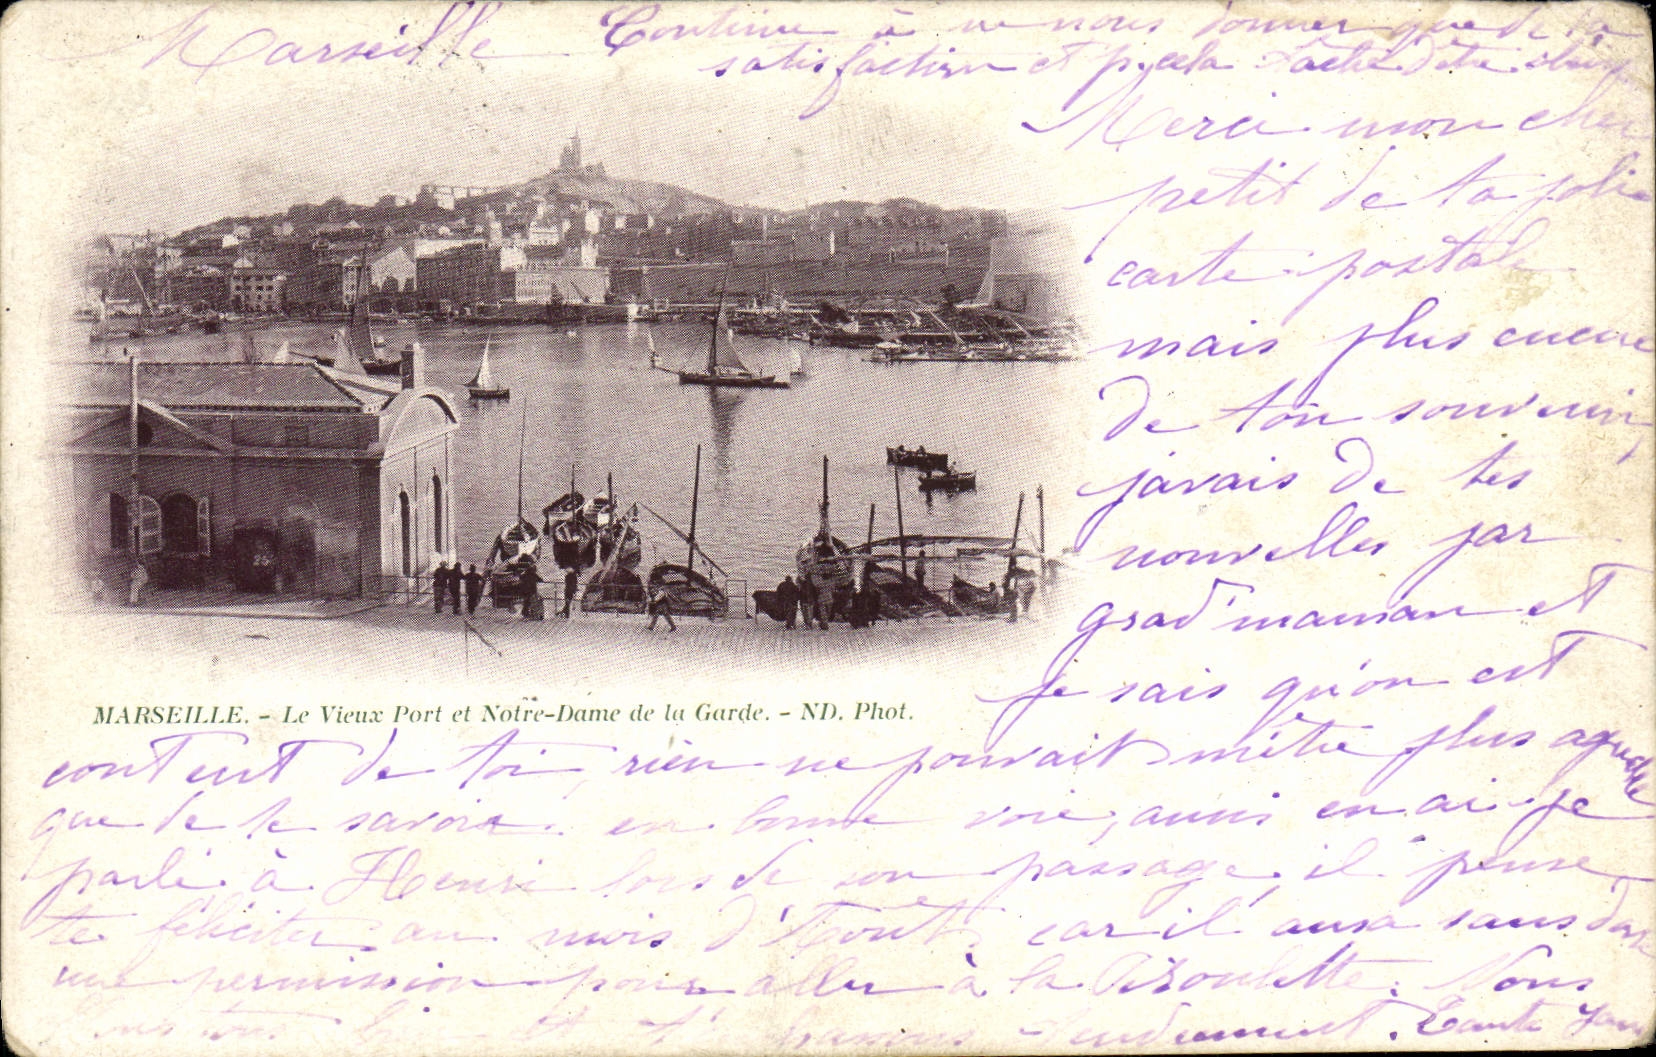 Marseille
Continue à ne nous donner que de la
satisfaction et p. cela tâche d'être
Merci mon cher
petit de ta jolie
carte postale
mais plus encore
de ton souvenir,
j'avais de tes
nouvelles par
grad'maman et
je sais qu'on est
MARSEILLE. - Le Vieux Port et Notre-Dame de la Garde. - ND. Phot.
content de toi, rien ne pouvait m'être plus agreable
que de te savoir en bonne voie, aussi en ai-je
parlé à Henri lors de son passage, il pense
te féliciter au mois d'Aout, car il aura sans dout
une permission pour aller à la Rroulette. Nous
tous bien et t' tendrement. Tante
25